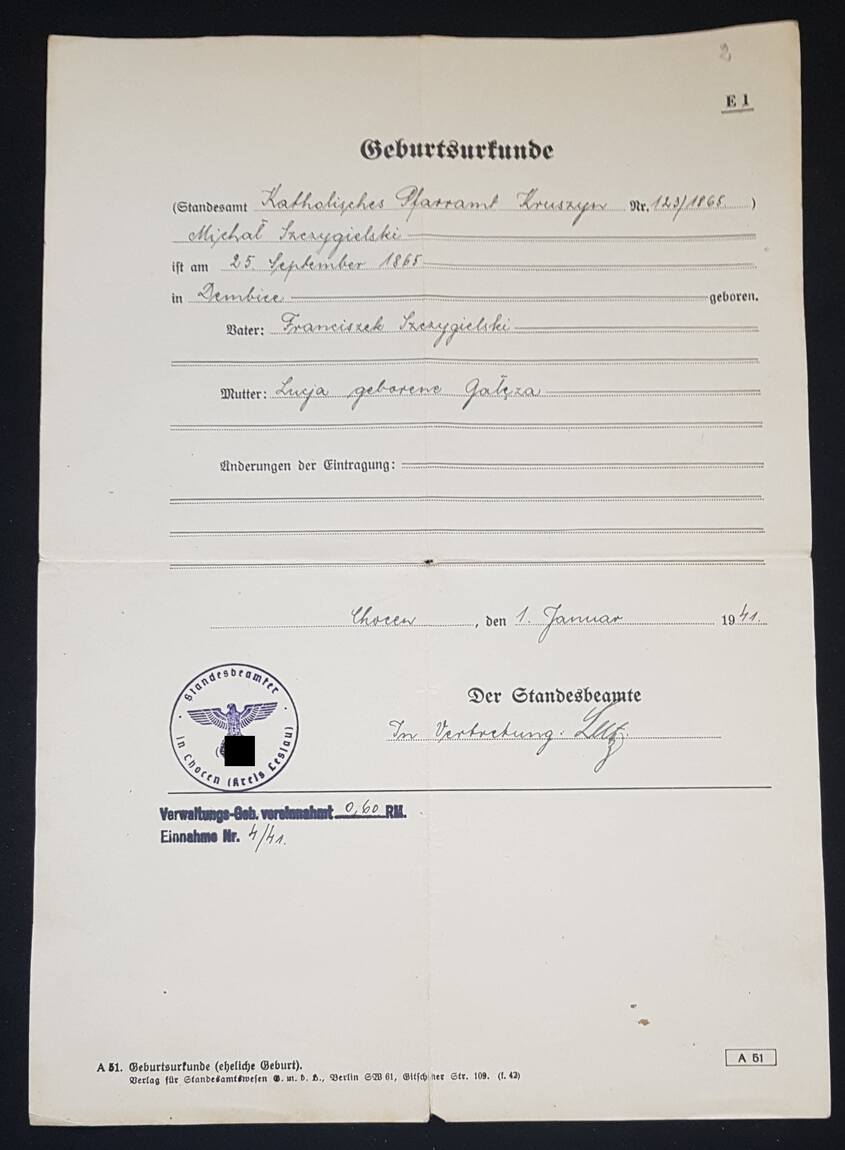 2
E 1
Geburtsurkunde
(Standesamt Katholisches Pfarramt Kruszyn Nr. 123/1865.)
Michał Szczygielski
ist am 25. September 1865
in Dembice geboren.
Vater: Franciszek Szczygielski
Mutter: Lucja geborene Gałęza
Änderungen der Eintragung:
Chocen, den 1. Januar 1941.
Der Standesbeamte
In Vertretung: Lutz.
Standesbeamter
in Chocen (Kreis Leslau)
Verwaltungs-Geb. vereinnahmt 0,60 RM.
Einnahme Nr. 4/41.
A 51
A 51. Geburtsurkunde (eheliche Geburt).
Verlag für Standesamtswesen G. m. b. H., Berlin SW 61, Gitschiner Str. 109. (f. 42)